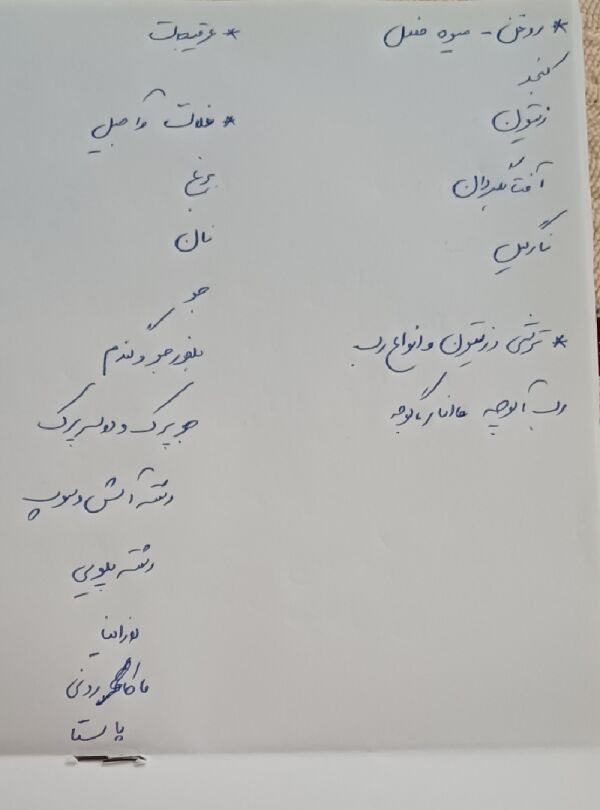 * روغن - میوه فصل
کنجد
زیتون
آفتابگردان
نارگیل
* ترشی و زیتون و انواع رب
رب آلوچه انار گوجه
* عرقیجات
* غلات و آجیل
برنج
نان
جو
بلغور جو و گندم
جو پرک و دوسر پرک
رشته آش و سوپ
رشته پلویی
لازانیا
ماکارونی
پاستا